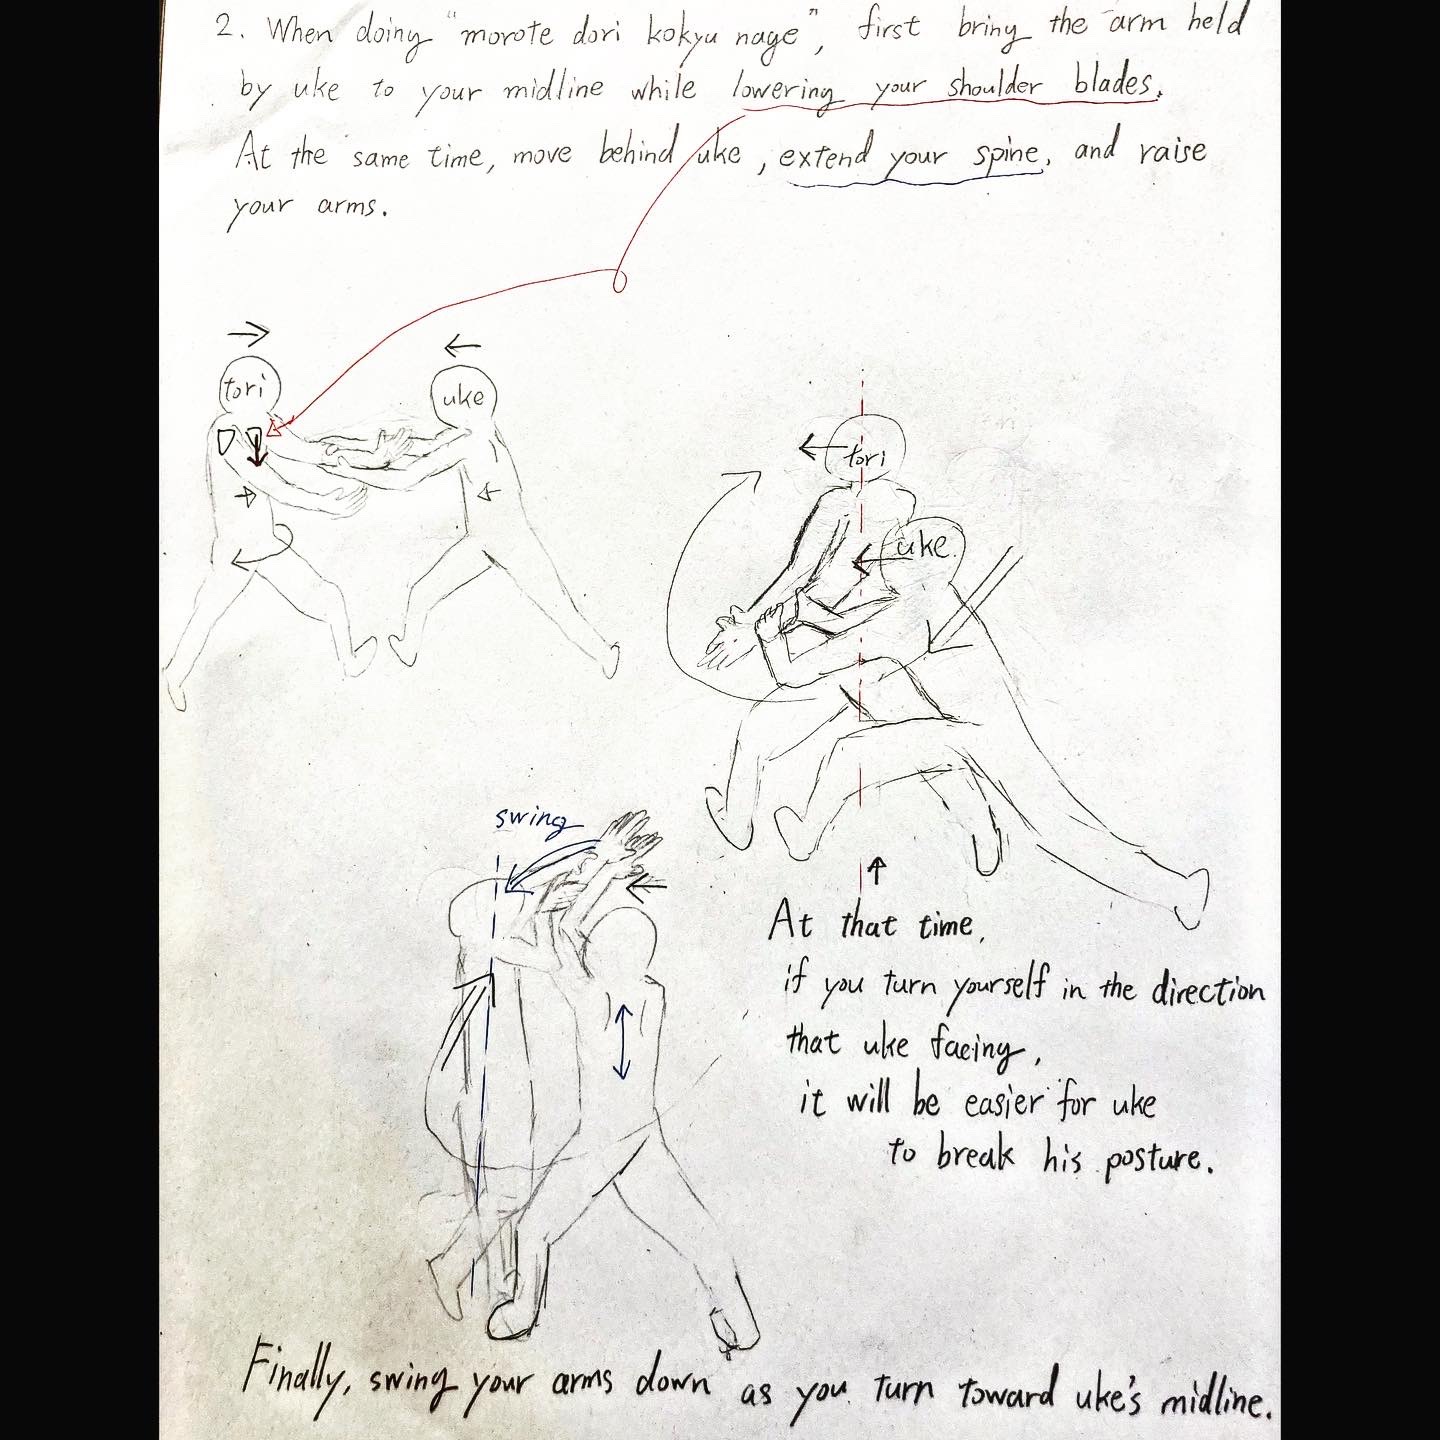 2. When doing "morote dori kokyu nage", first bring the arm held
by uke to your midline while lowering your shoulder blades.
At the same time, move behind uke, extend your spine, and raise
your arms.
tori
uke
tori
uke
swing
At that time,
if you turn yourself in the direction
that uke facing,
it will be easier for uke
to break his posture.
Finally, swing your arms down as you turn toward uke's midline.